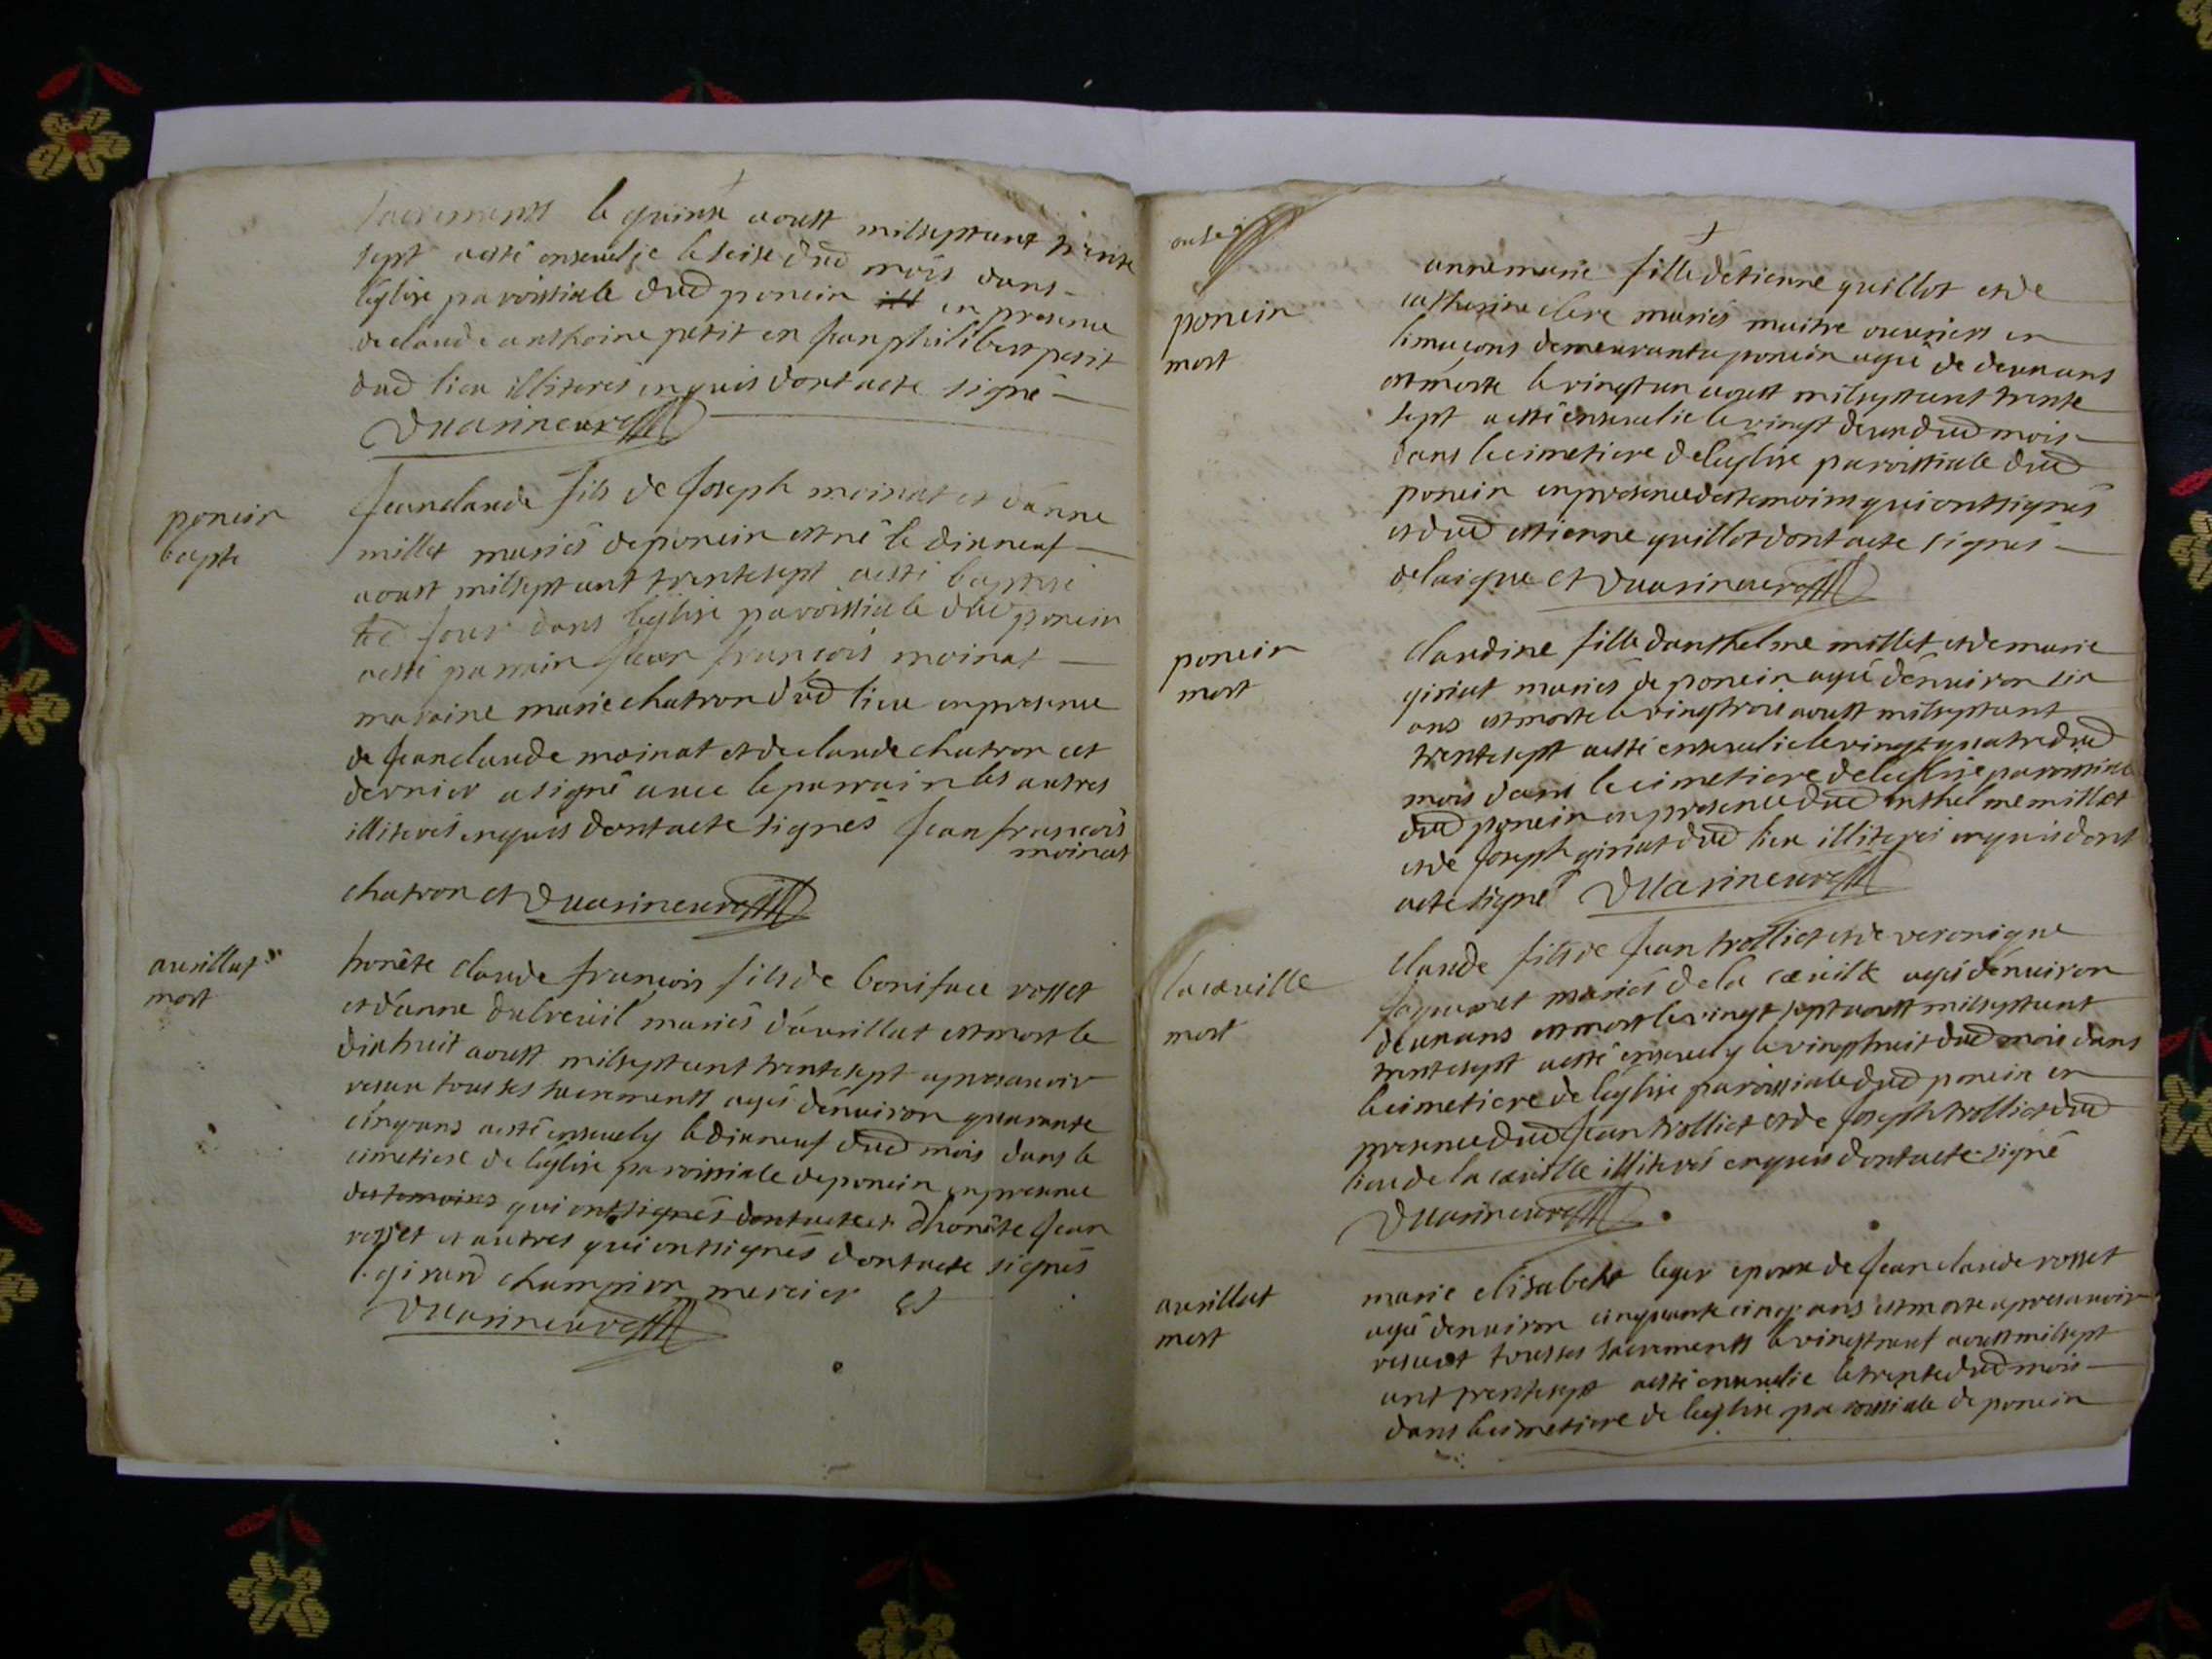 sacrements le quinze aoust milseptcent trente
sept aesté ensevelje le seise dud mois dans
l'églize paroissiale dud poncin en presence
de claude anthoine petit en jean philibert petit
dud lieu illiterés enquis dont acte signé
poncin
bapte
jeanclaude fils de joseph moinat et d'anne
millet mariés de poncin est né le dixneuf
aoust milsept cent trentesept aesté baptisé
led jour dans léglise paroissiale dud poncin
aesté parrain jean françois moinat
maraine marie chatron dud lieu enpresence
de jeanclaude moinat et de claude chatron cet
dernier a signé avec leparrain les autres
illiterés enquis dontacte signés jean françois
moinat
chatron et
avrillat
mort
honête claude françois fils de boniface rosset
et d'anne dubreuil mariés d'avrillat est mort le
dixhuit aoust milseptcent trentesept apresavoir
receu tous ses sacrements agés d'enuiron quarante
cinq ans aesté ensevely le dixneuf dud mois dans le
cimetiere de léglise paroissiale deponcin enpresence
des temoins qui ont signés dontacte et d'honête jean
rosset et autres qui ontsignés dontacte signés
girard champion mercier et
poncin
mort
annemarie fille détienne guillot et de
catherine clere mariés maitre ouuriers en
limaçons demeurant a poncin agée de deux ans
est morte le vingt un aoust milseptcent trente
sept aesté ensevelie le vingt deux dud mois
dans lecimetiere deléglise paroissiale dud
poncin enpresence des temoins qui ontsignés
et dud estienne guillot dont acte signés
delaigue et
poncin
mort
claudine fille d'anthelme millet et de marie
giriat mariés de poncin agée d'enuiron six
ans est morte le vingtrois aoust milseptcent
trentesept aesté ensevelie le vingt quatre dud
mois dans lecimetiere deléglise paroissiale
dud poncin enpresence dud anthelme millet
et de joseph giriat dud lieu illiterés enquis dont
acte signé
lacueille
mort
claude fils de jean trolliet et de veronique
jaquemet mariés de la cueille agés d'enuiron
deux ans est mort le vingt sept aoust milseptcent
trentesept aesté ensevely le vingthuit dud mois dans
lecimetiere de léglise paroissiale dud poncin en
presence dud jean trolliet et de joseph trolliet dud
lieu de la cueille illiterés enquis dontacte signé
avrillat
mort
marie elisabeth leger epouse de jean claude rosset
agée denuiron cinquante cinq ans est morte apresavoir
receut tousses sacrements le vingtneuf aoust milsept
cent trentesept aesté ensevelie le trente dud mois
dans lecimetiere de leglise paroissiale de poncin